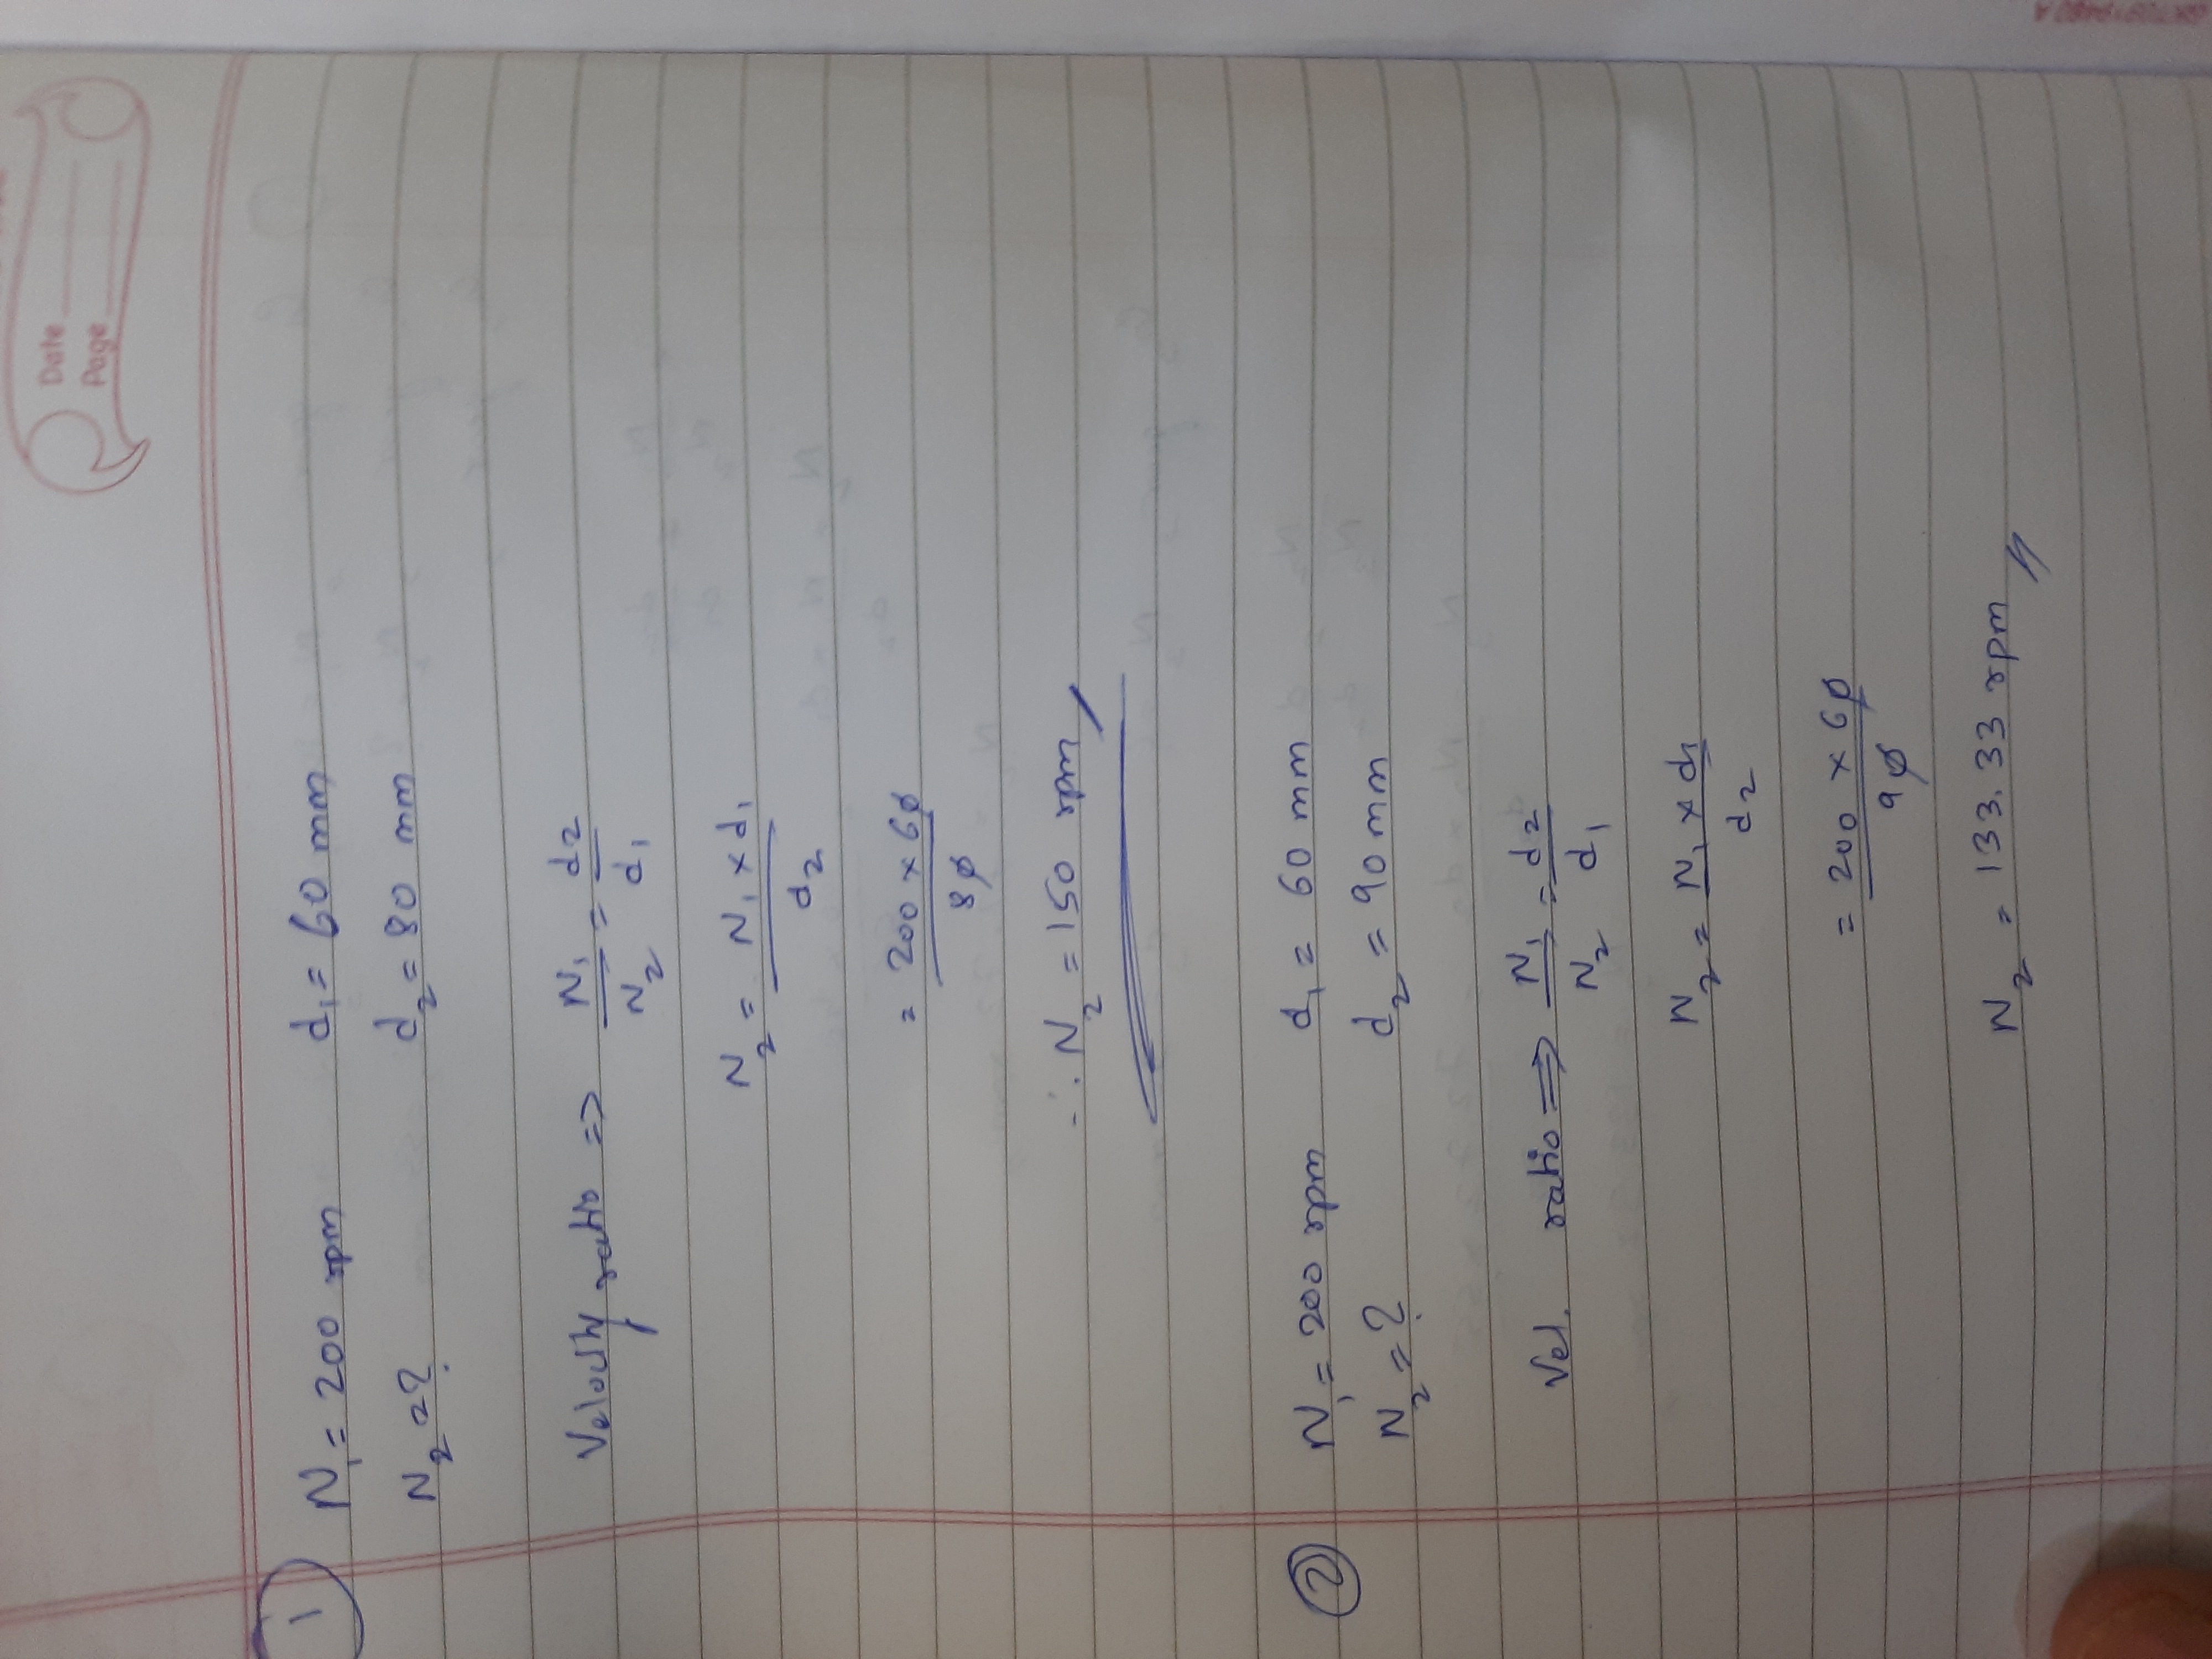 Date
Page
1
N₁ = 200 rpm d₁ = 60 mm
N₂ = ? d₂ = 80 mm
Velocity ratio => N₁/N₂ = d₂/d₁
N₂ = N₁ × d₁/d₂
= 200 × 60/80
∴ N₂ = 150 rpm
2
N₁ = 200 rpm d₁ = 60 mm
N₂ = ? d₂ = 90 mm
Vel. ratio => N₁/N₂ = d₂/d₁
N₂ = N₁ × d₁/d₂
= 200 × 60/90
N₂ = 133.33 rpm